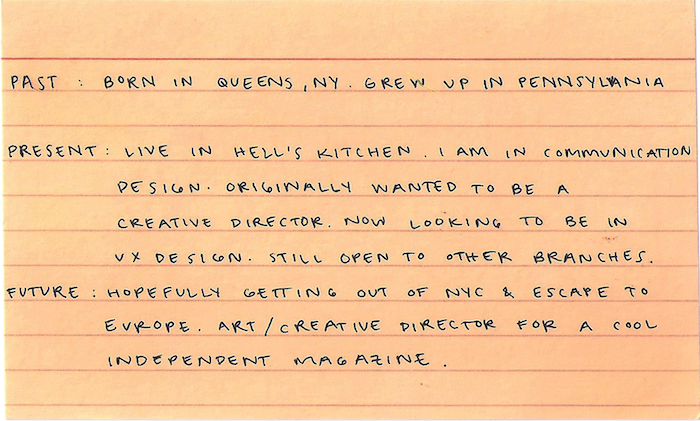 PAST : BORN IN QUEENS, NY. GREW UP IN PENNSYLVANIA
PRESENT : LIVE IN HELL'S KITCHEN. I AM IN COMMUNICATION
DESIGN. ORIGINALLY WANTED TO BE A
CREATIVE DIRECTOR. NOW LOOKING TO BE IN
UX DESIGN. STILL OPEN TO OTHER BRANCHES.
FUTURE : HOPEFULLY GETTING OUT OF NYC & ESCAPE TO
EUROPE. ART/CREATIVE DIRECTOR FOR A COOL
INDEPENDENT MAGAZINE.